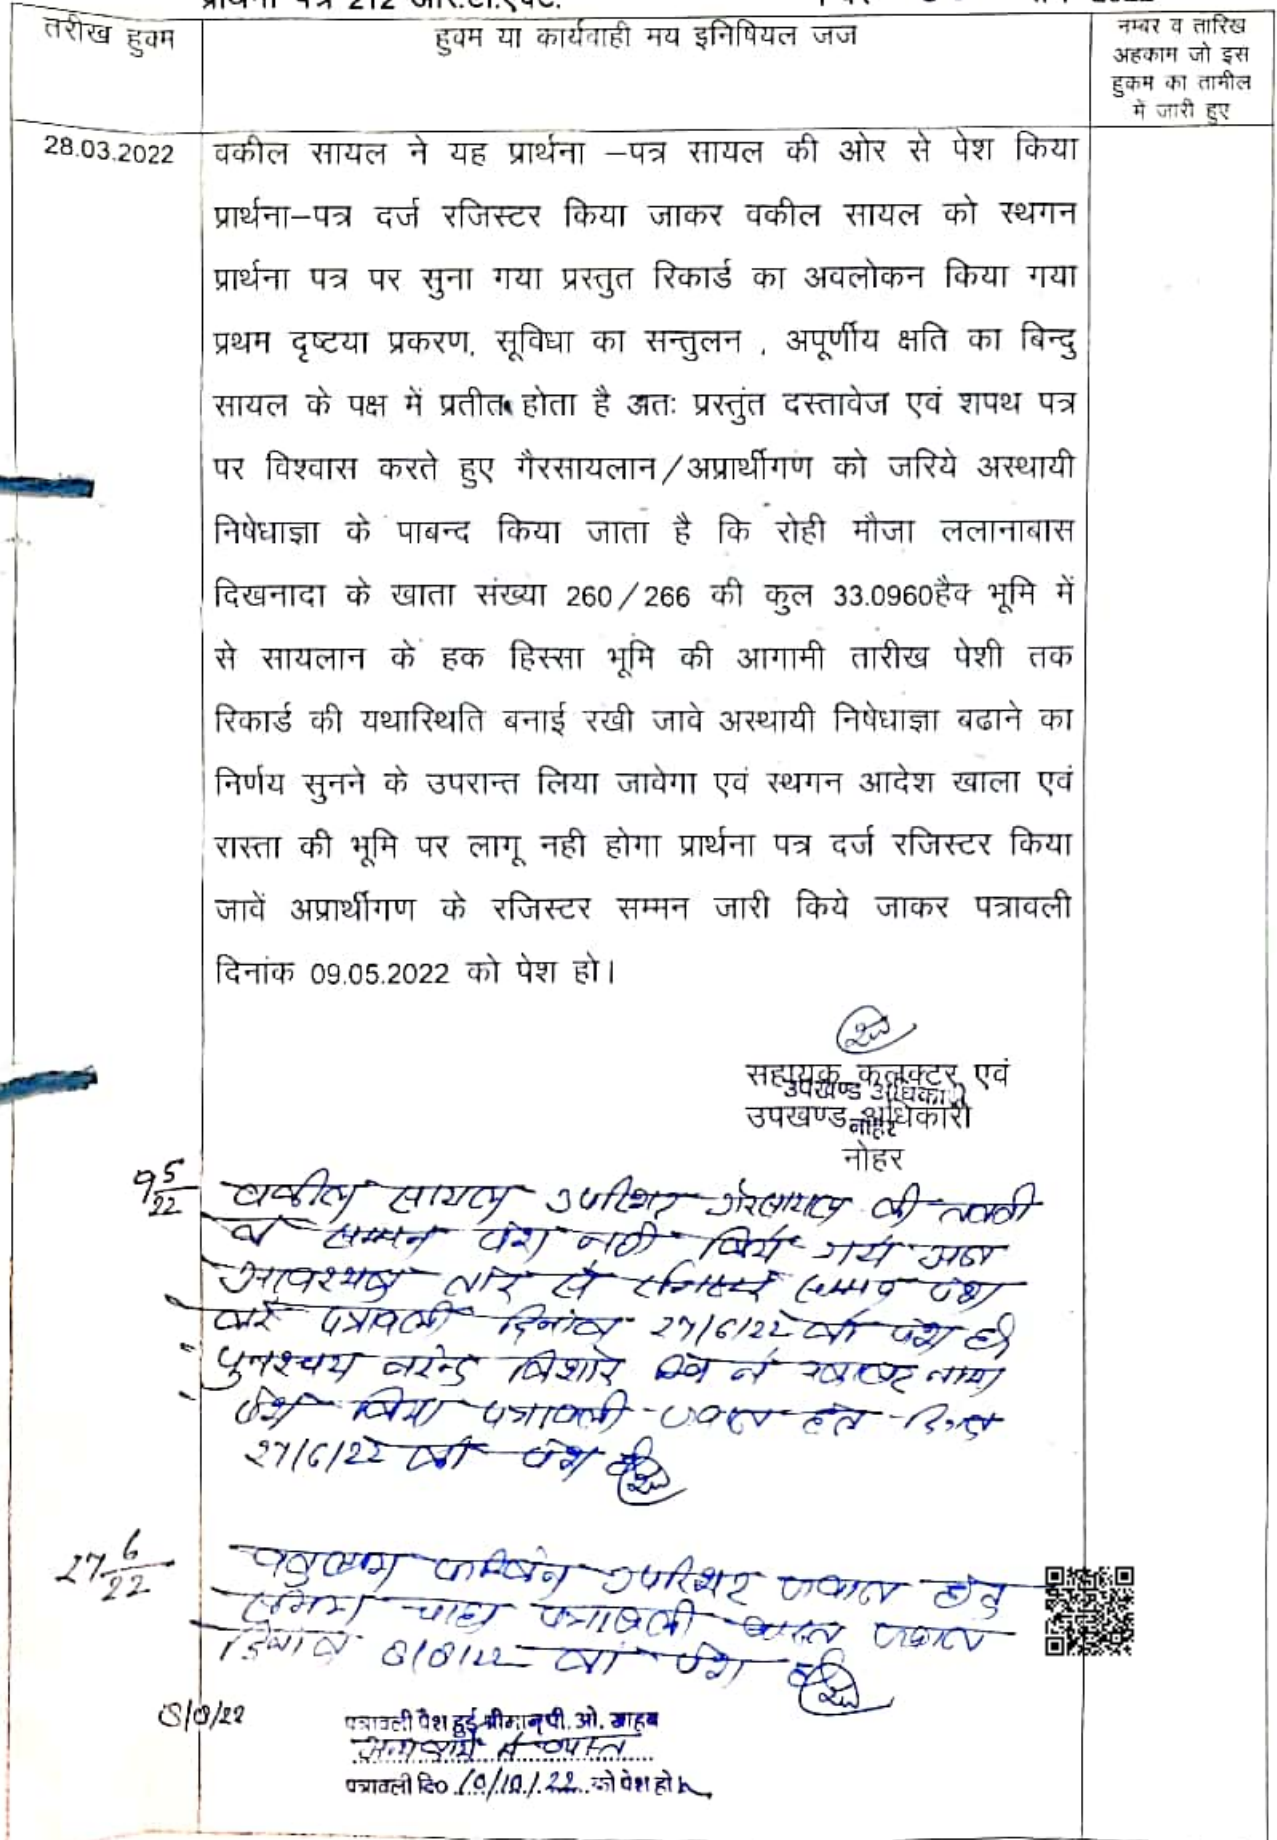 प्रार्थना पत्र 212 आर.टी.एक्ट. 2022
तरीख हुक्म
हुक्म या कार्यवाही मय इनिषियल जज
नम्बर व तारिख
अहकाम जो इस
हुकम का तामील
में जारी हुए
28.03.2022
वकील सायल ने यह प्रार्थना –पत्र सायल की ओर से पेश किया
प्रार्थना–पत्र दर्ज रजिस्टर किया जाकर वकील सायल को स्थगन
प्रार्थना पत्र पर सुना गया प्रस्तुत रिकार्ड का अवलोकन किया गया
प्रथम दृष्टया प्रकरण, सूविधा का सन्तुलन , अपूर्णीय क्षति का बिन्दु
सायल के पक्ष में प्रतीत होता है अतः प्रस्तुंत दस्तावेज एवं शपथ पत्र
पर विश्वास करते हुए गैरसायलान/अप्रार्थीगण को जरिये अस्थायी
निषेधाज्ञा के पाबन्द किया जाता है कि रोही मौजा ललानाबास
दिखनादा के खाता संख्या 260/266 की कुल 33.0960हैक भूमि में
से सायलान के हक हिस्सा भूमि की आगामी तारीख पेशी तक
रिकार्ड की यथास्थिति बनाई रखी जावे अस्थायी निषेधाज्ञा बढाने का
निर्णय सुनने के उपरान्त लिया जावेगा एवं स्थगन आदेश खाला एवं
रास्ता की भूमि पर लागू नही होगा प्रार्थना पत्र दर्ज रजिस्टर किया
जावें अप्रार्थीगण के रजिस्टर सम्मन जारी किये जाकर पत्रावली
दिनांक 09.05.2022 को पेश हो।
सहायक कलक्टर एवं
उपखण्ड अधिकारी
उपखण्ड अधिकारी
नोहर
नोहर
9 5/22
वकील सायल उपस्थित गैरसायल की तलबी
व सम्मन पेश नही किये गये अतः
आवश्यक तौर से रजिस्टर सम्मन पेश
करे पत्रावली दिनांक 27/6/22 को पेश हो
पुनश्चय नरेन्द्र किशोर ने नामा
पेश किया पत्रावली जवाब हेतु
27/6/22 को पेश हो
27 6/22
उपस्थित जवाब हेतु
समय चाहा पत्रावली वास्ते जवाब
दिनांक 8/8/22 को पेश हो
8/8/22
पत्रावली पेश हुई श्रीमान् पी. ओ. साहब
अन्य कार्य में व्यस्त
पत्रावली दि० 10/10/22 को पेश हो